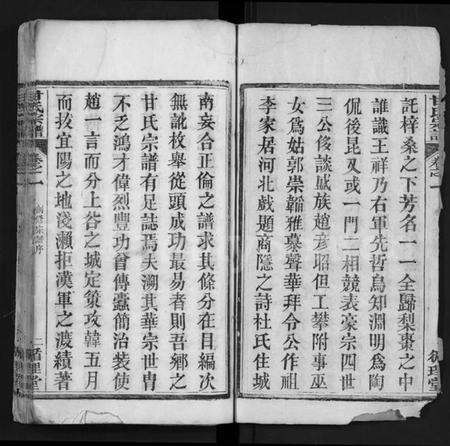 託梓桑之下芳名一一全歸梨棗之中
誰識王祥乃右軍先哲爲知淵明爲陶
侃後昆又或一門二相競表豪宗四世
三公侈談戚族趙彥昭但工攀附事巫
女爲姑郭崇韜雅慕聲華拜令公作祖
李家居河北戲題商隱之詩杜氏住城
南妄合正倫之譜求其條分在目編次
無訛枚舉從頭成功最易者則吾鄉之
甘氏宗譜有足誌焉夫溯其華宗世胄
不乏鴻才偉烈豐功曾傳蠹簡治裝使
趙一言而分上谷之城定策攻韓五月
而拔宜陽之地淺瀨拒漢軍之渡績著
甘氏宗譜
卷之一
循理堂